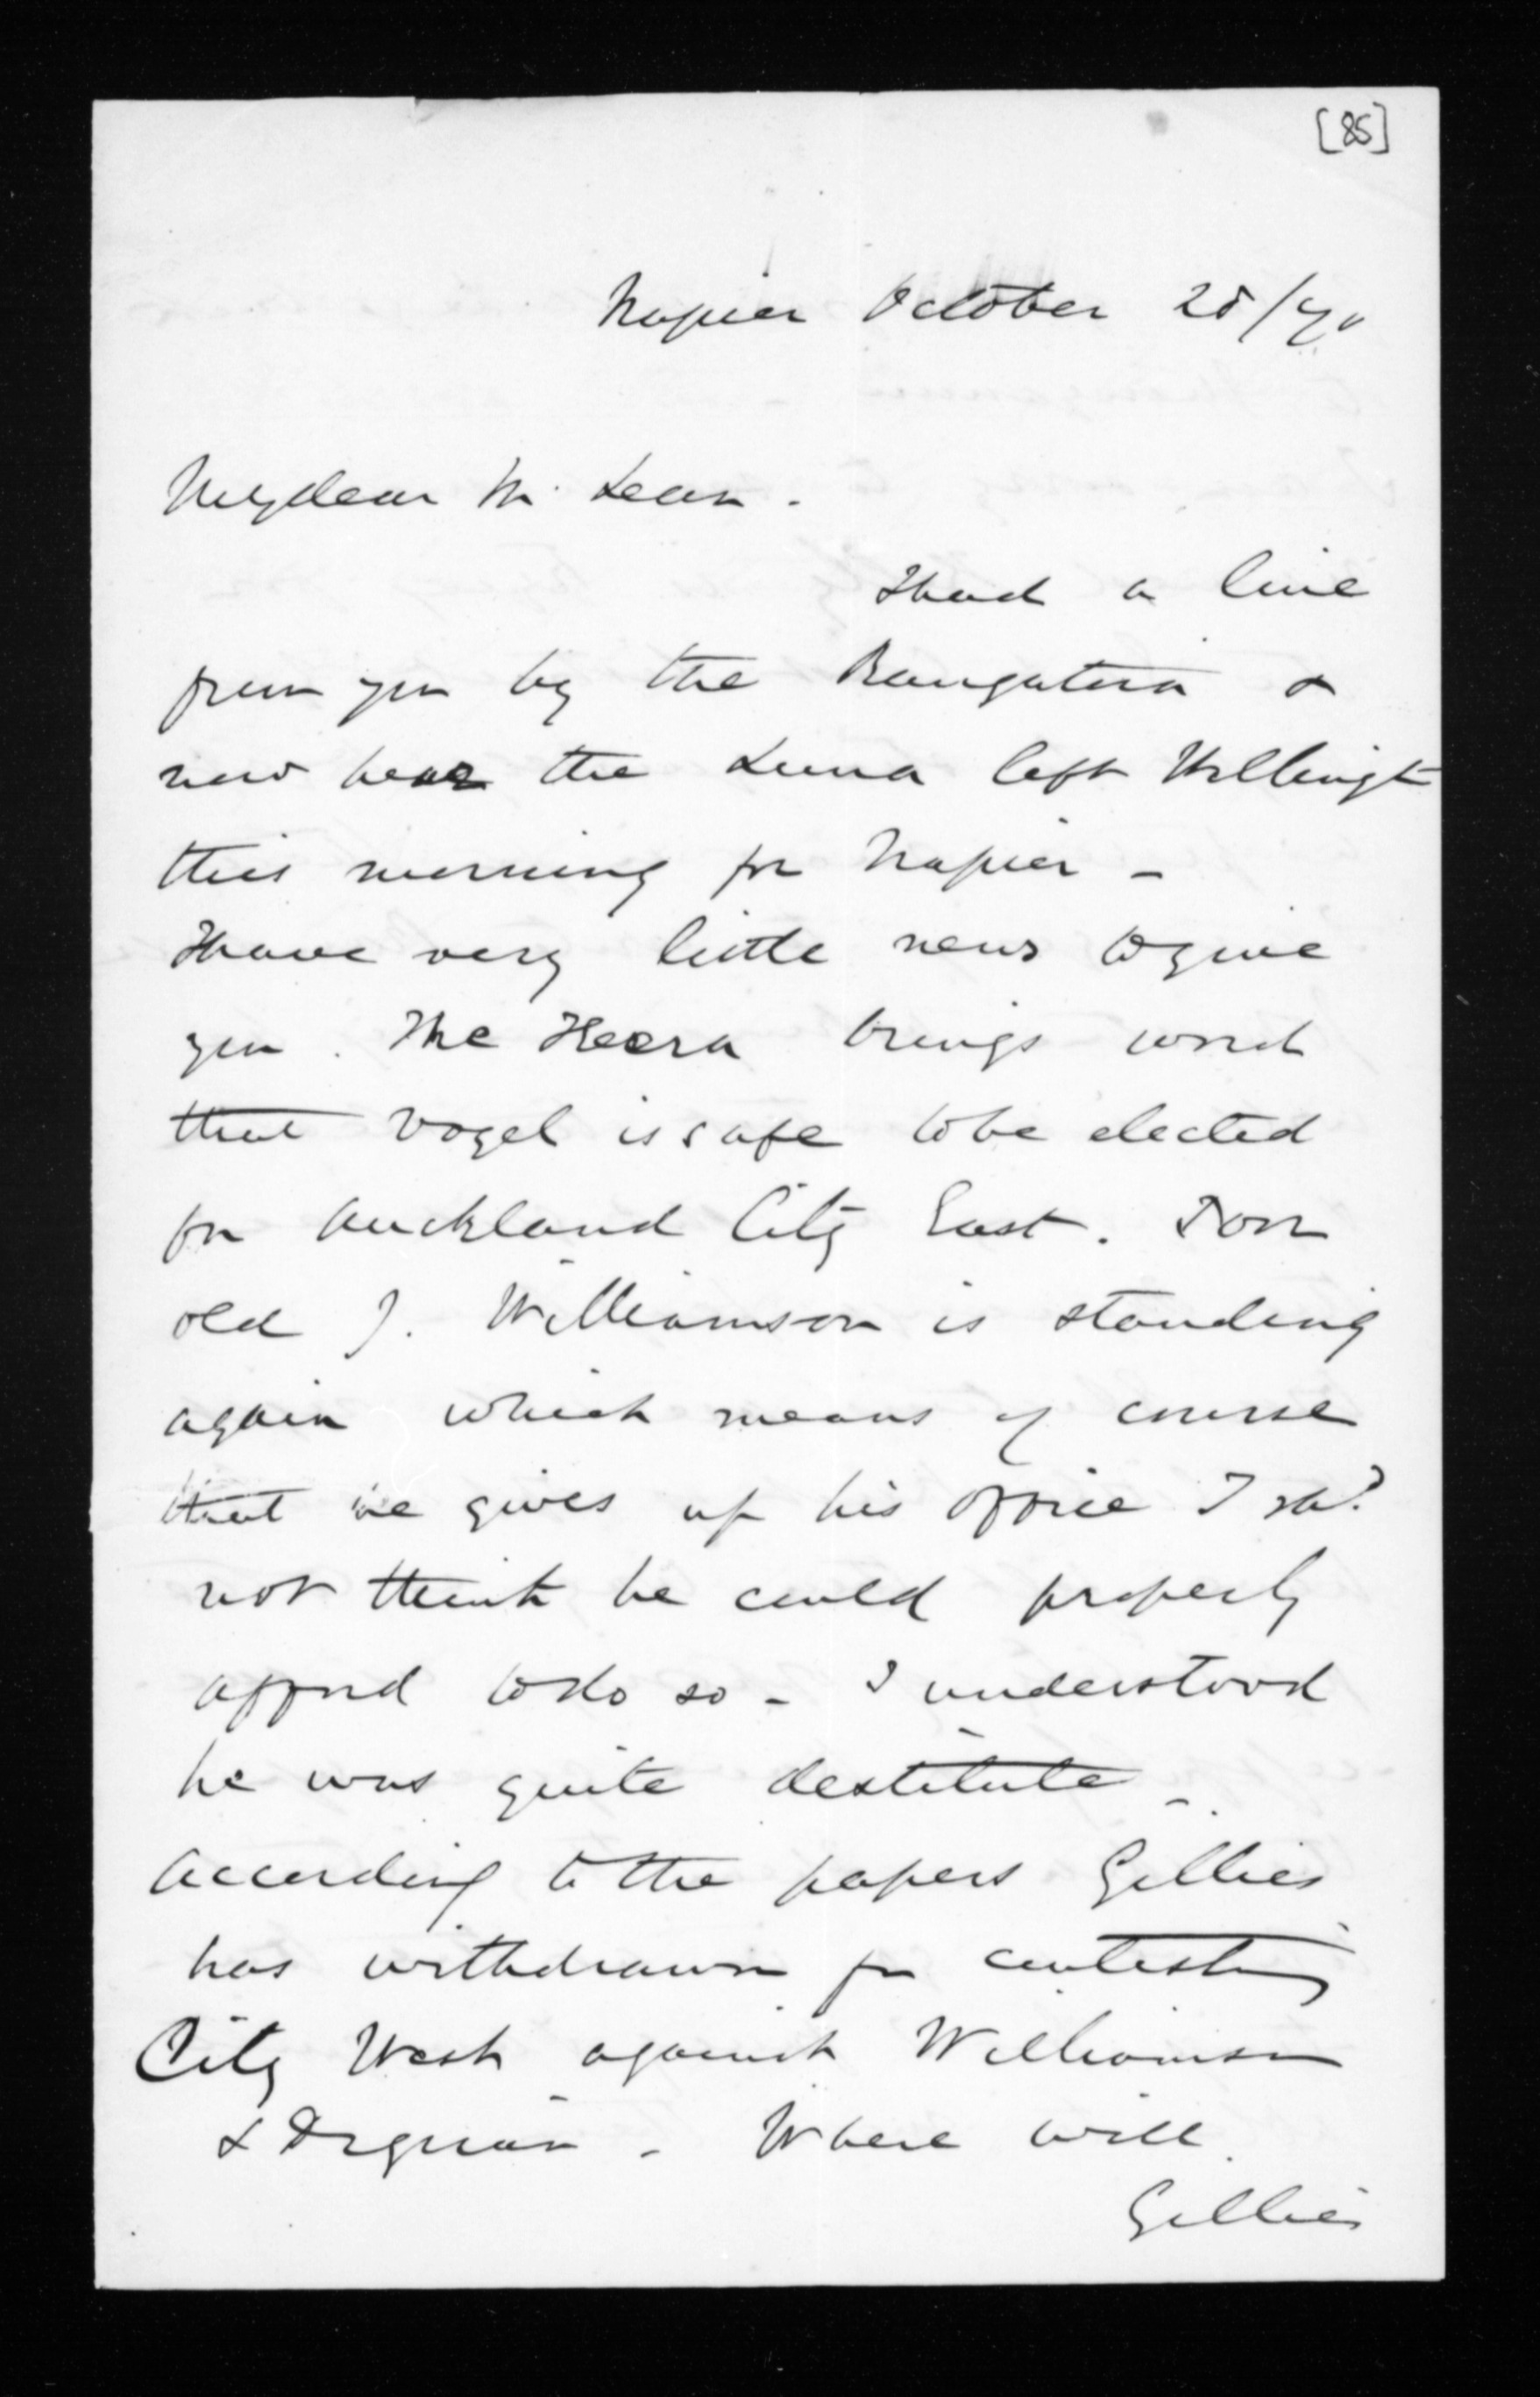 [85]
Napier October 28/70
My dear McLean.
I had a line
from you by the Rangatira &
now hear the Luna left Wellingt
this morning for Napier -
I have very little news to give
you. The Heera brings word
that Vogel is safe to be elected
for Auckland City East. Poor
old J. Williamson is standing
again which means of course
that he gives up his office I shd
not think he could properly
afford to do so - I understood
he was quite destitute -
According to the papers Gillies
has withdrawn for contesting
City West against Williamson
& Dignan - Where will
Gillies